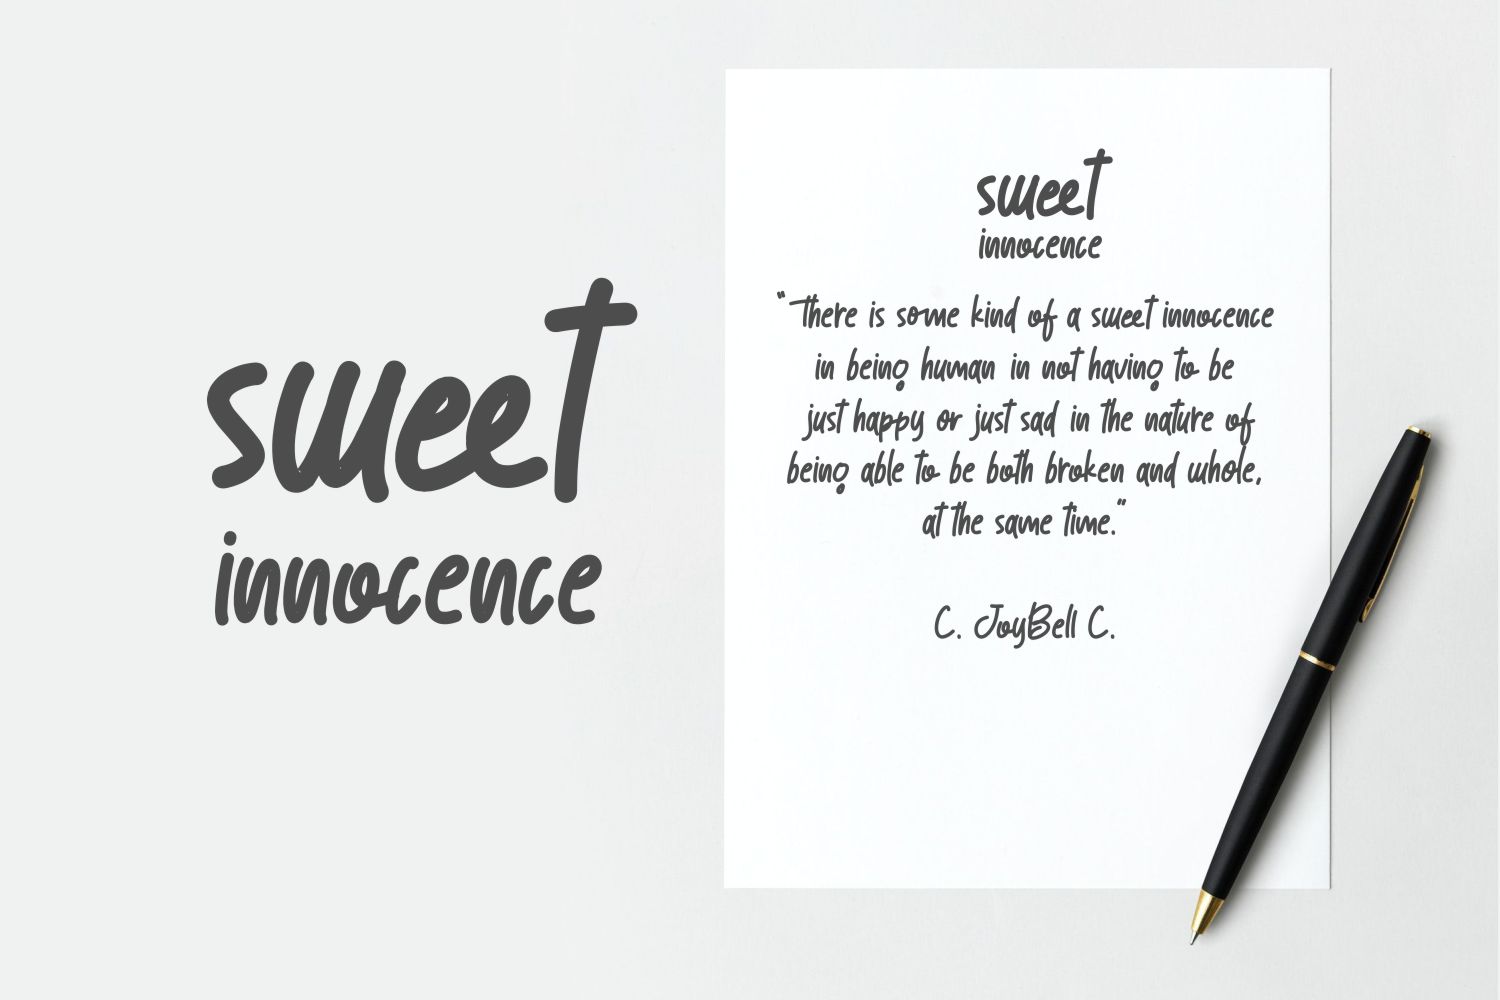 sweet
innocence
sweet
innocence
"There is some kind of a sweet innocence
in being human in not having to be
just happy or just sad in the nature of
being able to be both broken and whole,
at the same time."
C. JoyBell C.